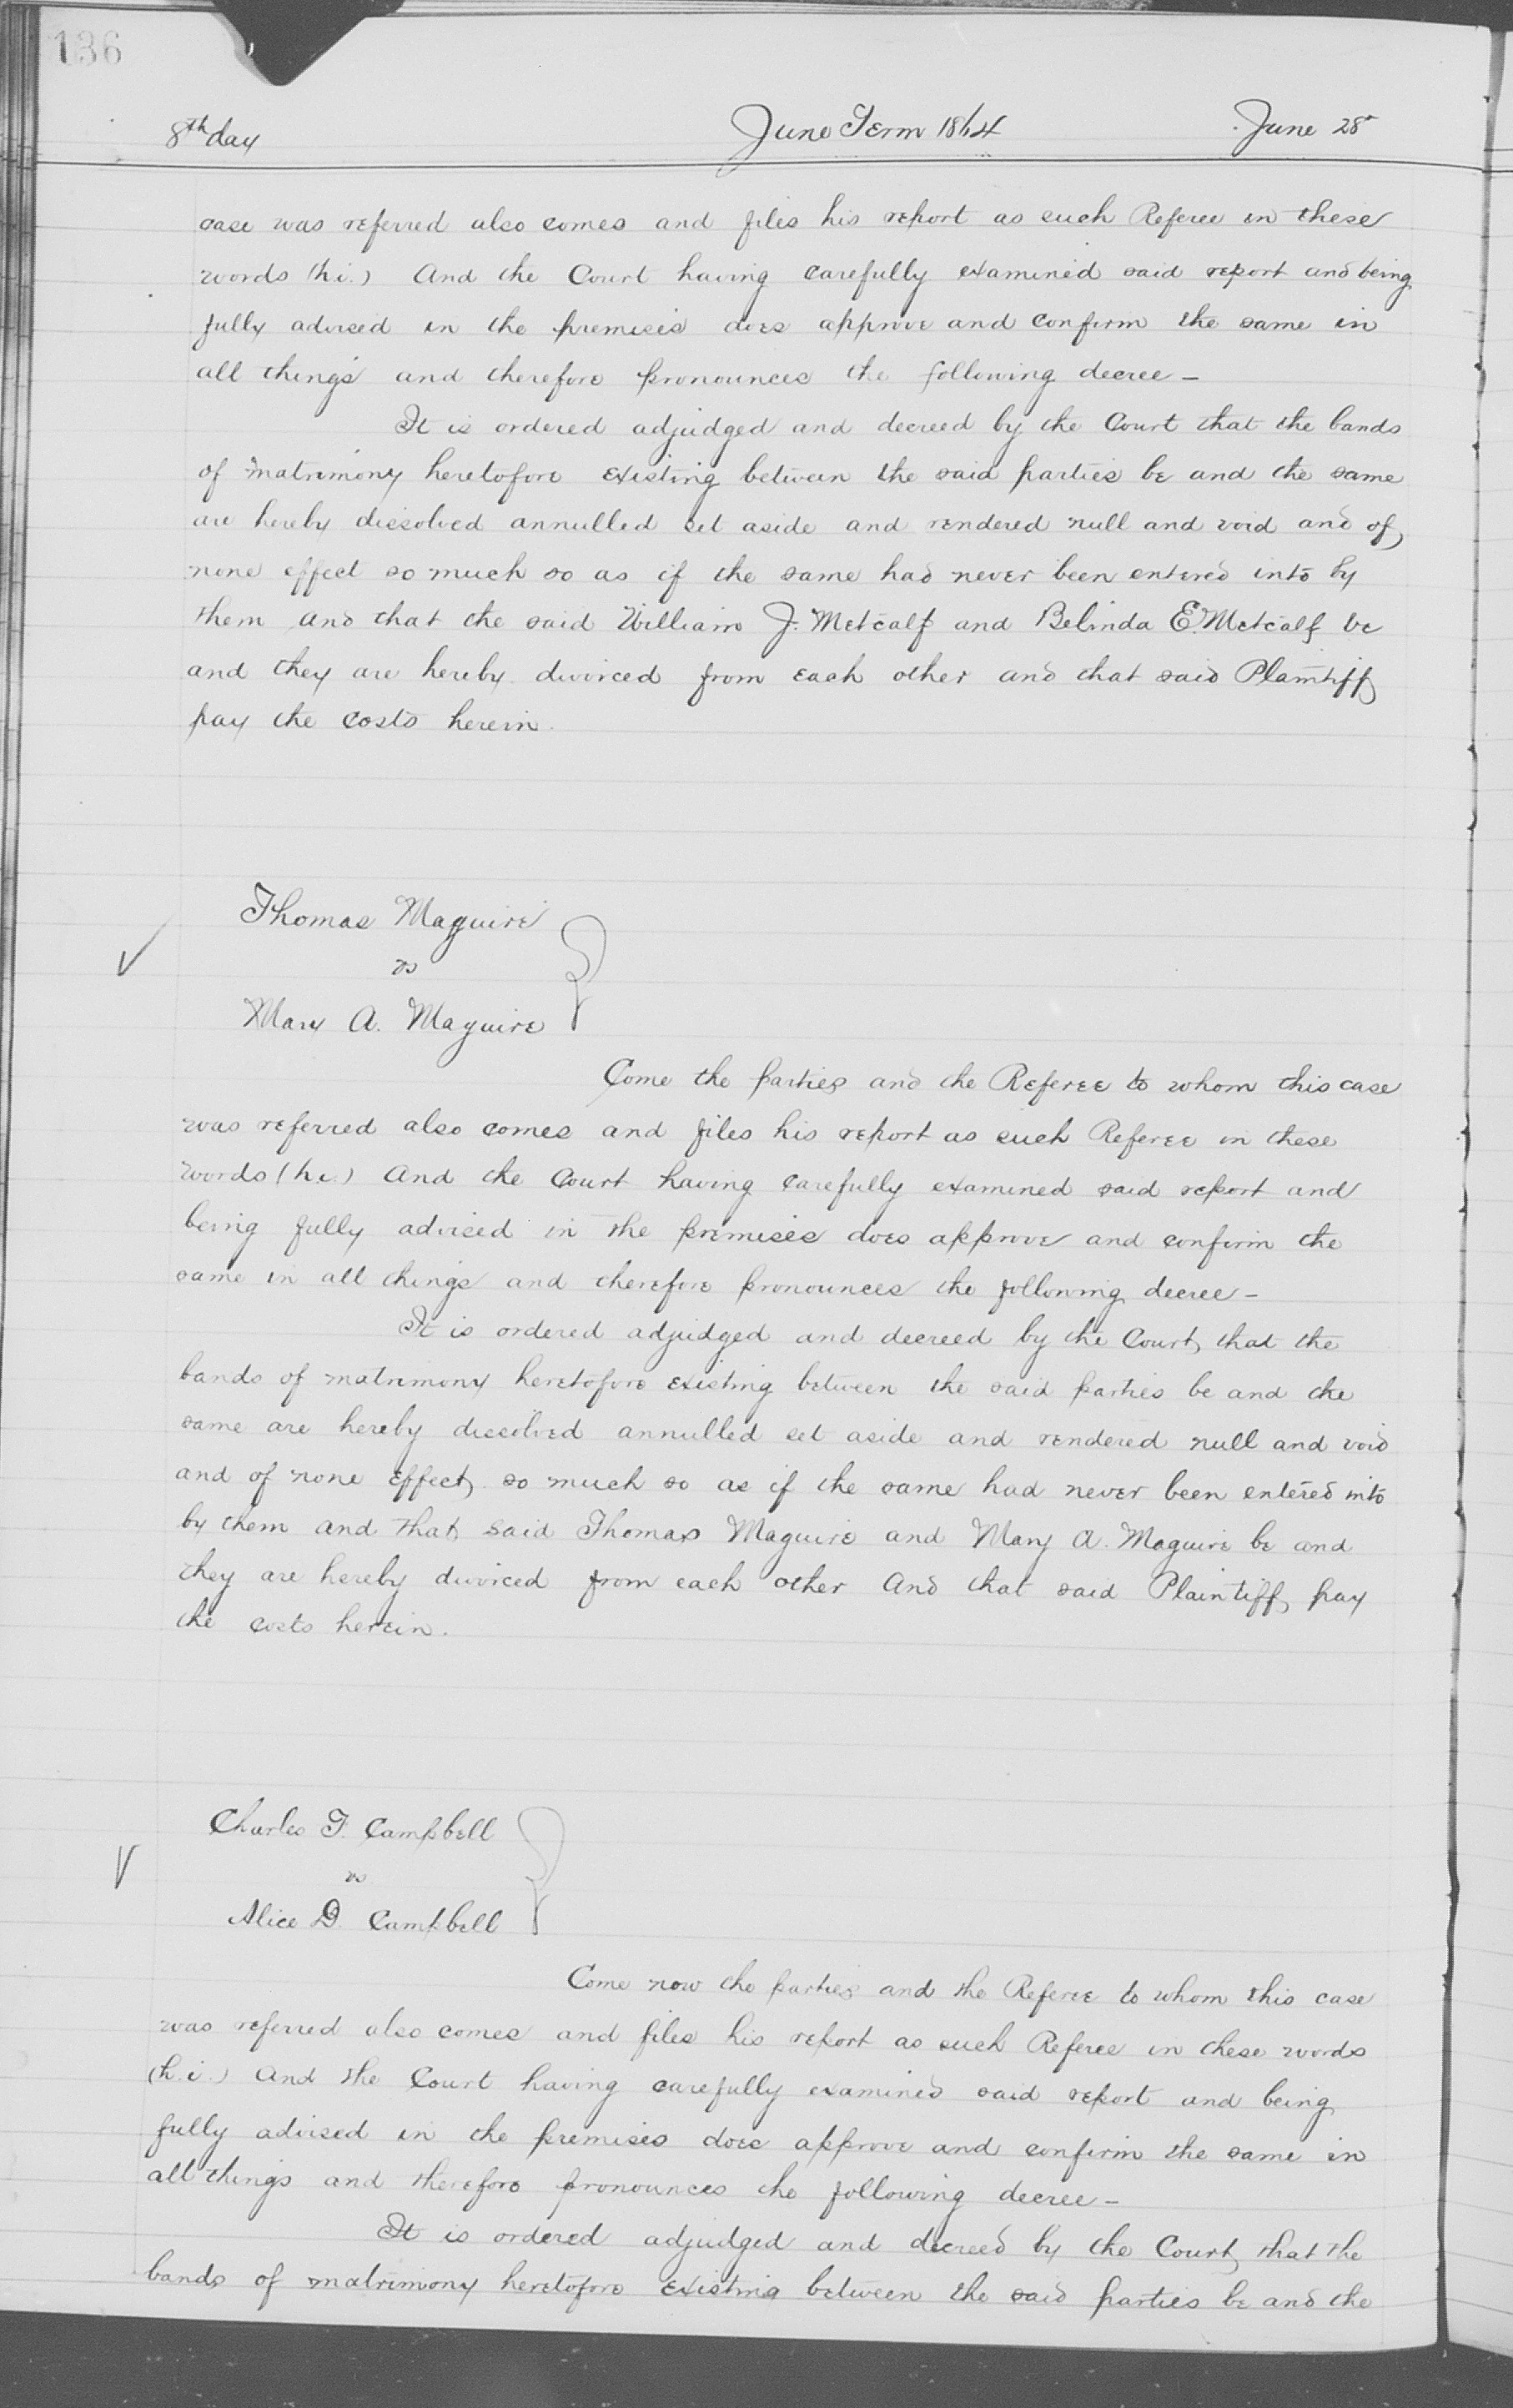 136
8th day June Term 1864 June 28"
case was referred also comes and files his report as such Referee in these
words (h.i.) And the Court having carefully examined said report and being
fully advised in the premises does approve and confirm the same in
all things and therefore pronounces the following decree —
It is ordered adjudged and decreed by the Court that the bands
of matrimony heretofore existing between the said parties be and the same
are hereby dissolved annulled set aside and rendered null and void and of
none effect so much so as if the same had never been entered into by
them and that the said William J. Metcalf and Belinda E. Metcalf be
and they are hereby divorced from each other and that said Plaintiff
pay the costs herein.
Thomas Maguire
vs
Mary A. Maguire
Come the parties and the Referee to whom this case
was referred also comes and files his report as such Referee in these
words (h.i.) And the Court having carefully examined said report and
being fully advised in the premises does approve and confirm the
same in all things and therefore pronounces the following decree —
It is ordered adjudged and decreed by the Court that the
bands of matrimony heretofore existing between the said parties be and the
same are hereby dissolved annulled set aside and rendered null and void
and of none effect so much so as if the same had never been entered into
by them and that said Thomas Maguire and Mary A. Maguire be and
they are hereby divorced from each other And that said Plaintiff pay
the costs herein.
Charles F. Campbell
vs
Alice D. Campbell
Come now the parties and the Referee to whom this case
was referred also comes and files his report as such Referee in these words
(h.i.) And the Court having carefully examined said report and being
fully advised in the premises does approve and confirm the same in
all things and therefore pronounces the following decree —
It is ordered adjudged and decreed by the Court that the
bands of matrimony heretofore existing between the said parties be and the